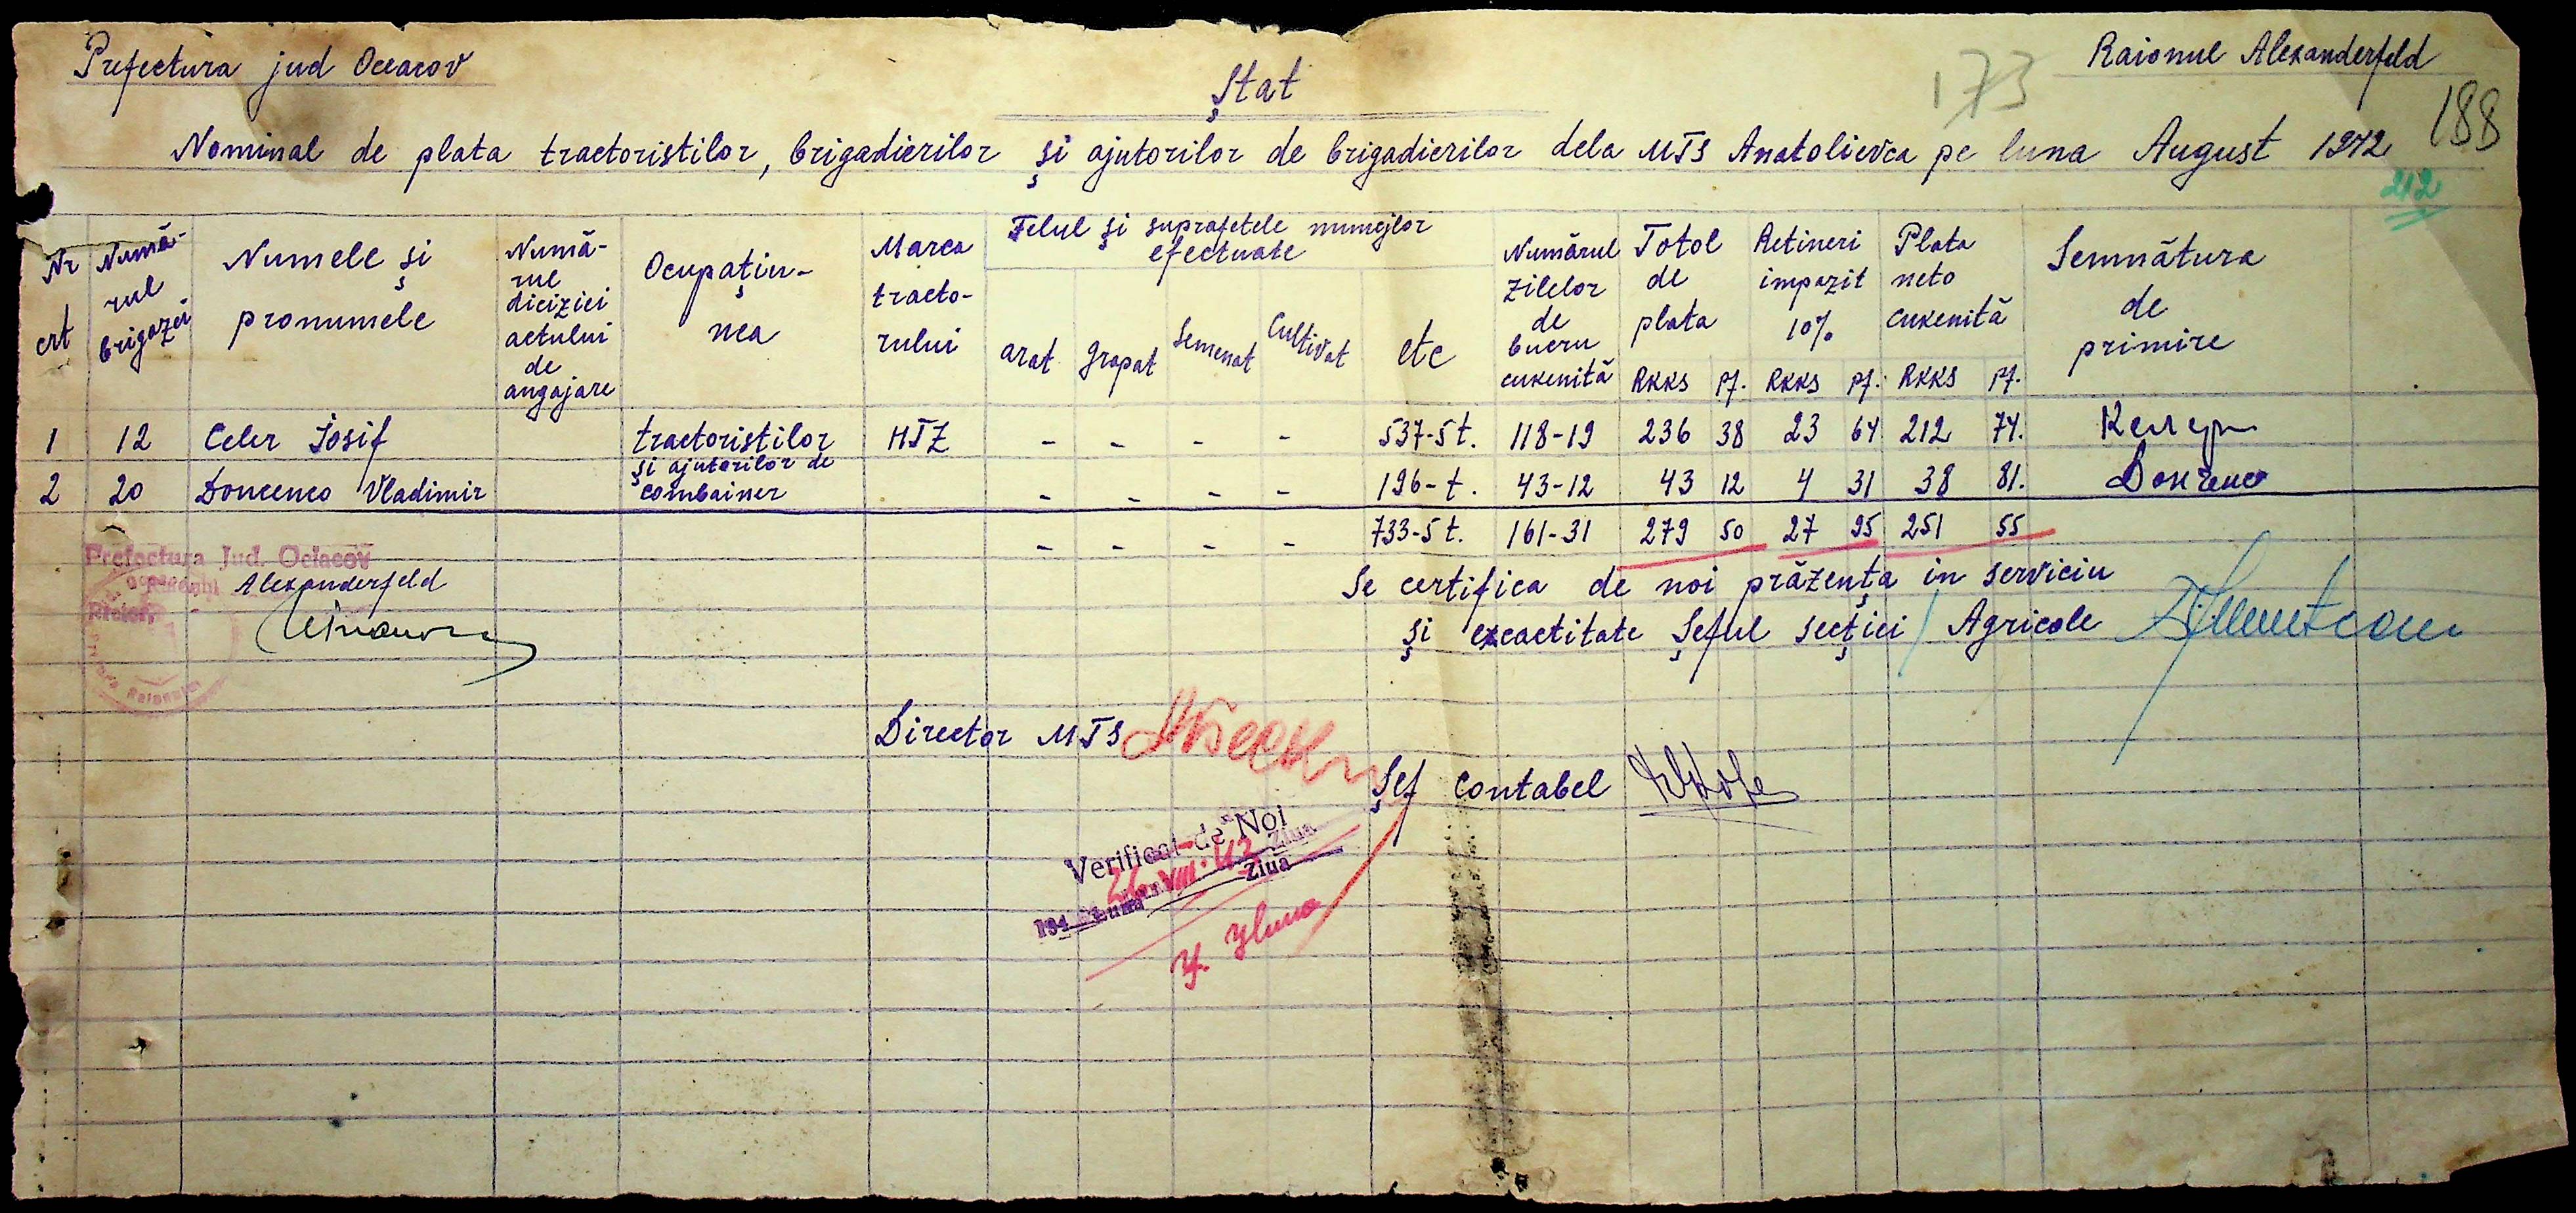 Prefectura jud Oceacov
Raionul Alexanderfeld
173
188
Ştat
Nominal de plata tractoristilor, brigadierilor şi ajutorilor de brigadierilor dela MTS Anatolievca pe luna August 1942
212
Nr crt
Numă-rul brigazei
Numele şi pronumele
Numă-rul diciziei actului de angajare
Ocupaţiu-nea
Marca tracto-rului
Felul şi suprafetele muncilor efectuate
arat grapat Semenat Cultivat etc
Numărul zilelor de bucru cukenită
Totol de plata
RKKS pf.
Retineri impozit 10%
RKKS pf.
Plata neto cukenită
RKKS pf.
Semnătura de primire
1 12 Celer Iosif tractoristilor HTZ - - - - 537-5 t. 118-19 236 38 23 64 212 74. Келер
şi ajutorilor de
2 20 Doncenco Vladimir combainer - - - - 196-t. 43-12 43 12 4 31 38 81. Донченко
- - - - 733-5 t. 161-31 279 50 27 95 251 55
Prefectura Jud. Ociacov
Alexanderfeld
Se certifica de noi prăzenţa in serviciu
şi excactitate Şeful secţiei Agricole
Director MTS
Şef contabel
Verificat de Noi
Ziua
194 Luna Ziua